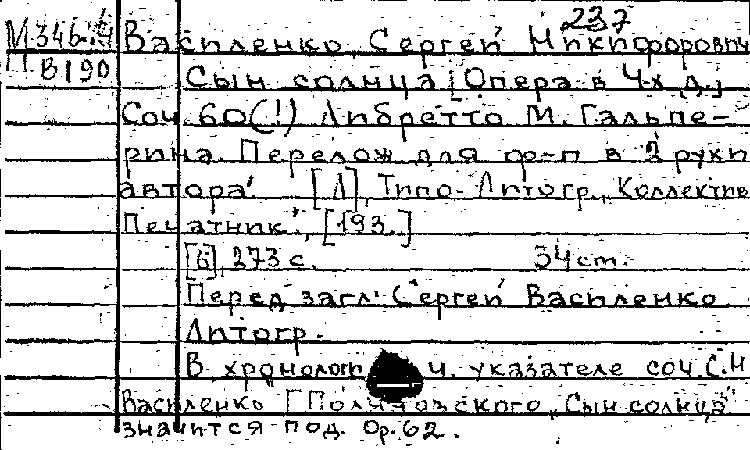 237
М.346.4 Василенко, Сергей Никифорович
П.
В190 Сын солнца [Опера в 4-х д.]
Соч. 60(!) Либретто М. Гальпе-
рина. Перелож для ф-п в 2 руки
автора. [Л], Типо-Литогр., Коллектив
Печатник", [193.]
[6], 273 с. 34 ст.
Перед загл: Сергей Василенко
Литогр.
В ч. указателе соч. С.Н
Василенко Г "Сын солнца"
значится под. Ор. 62.